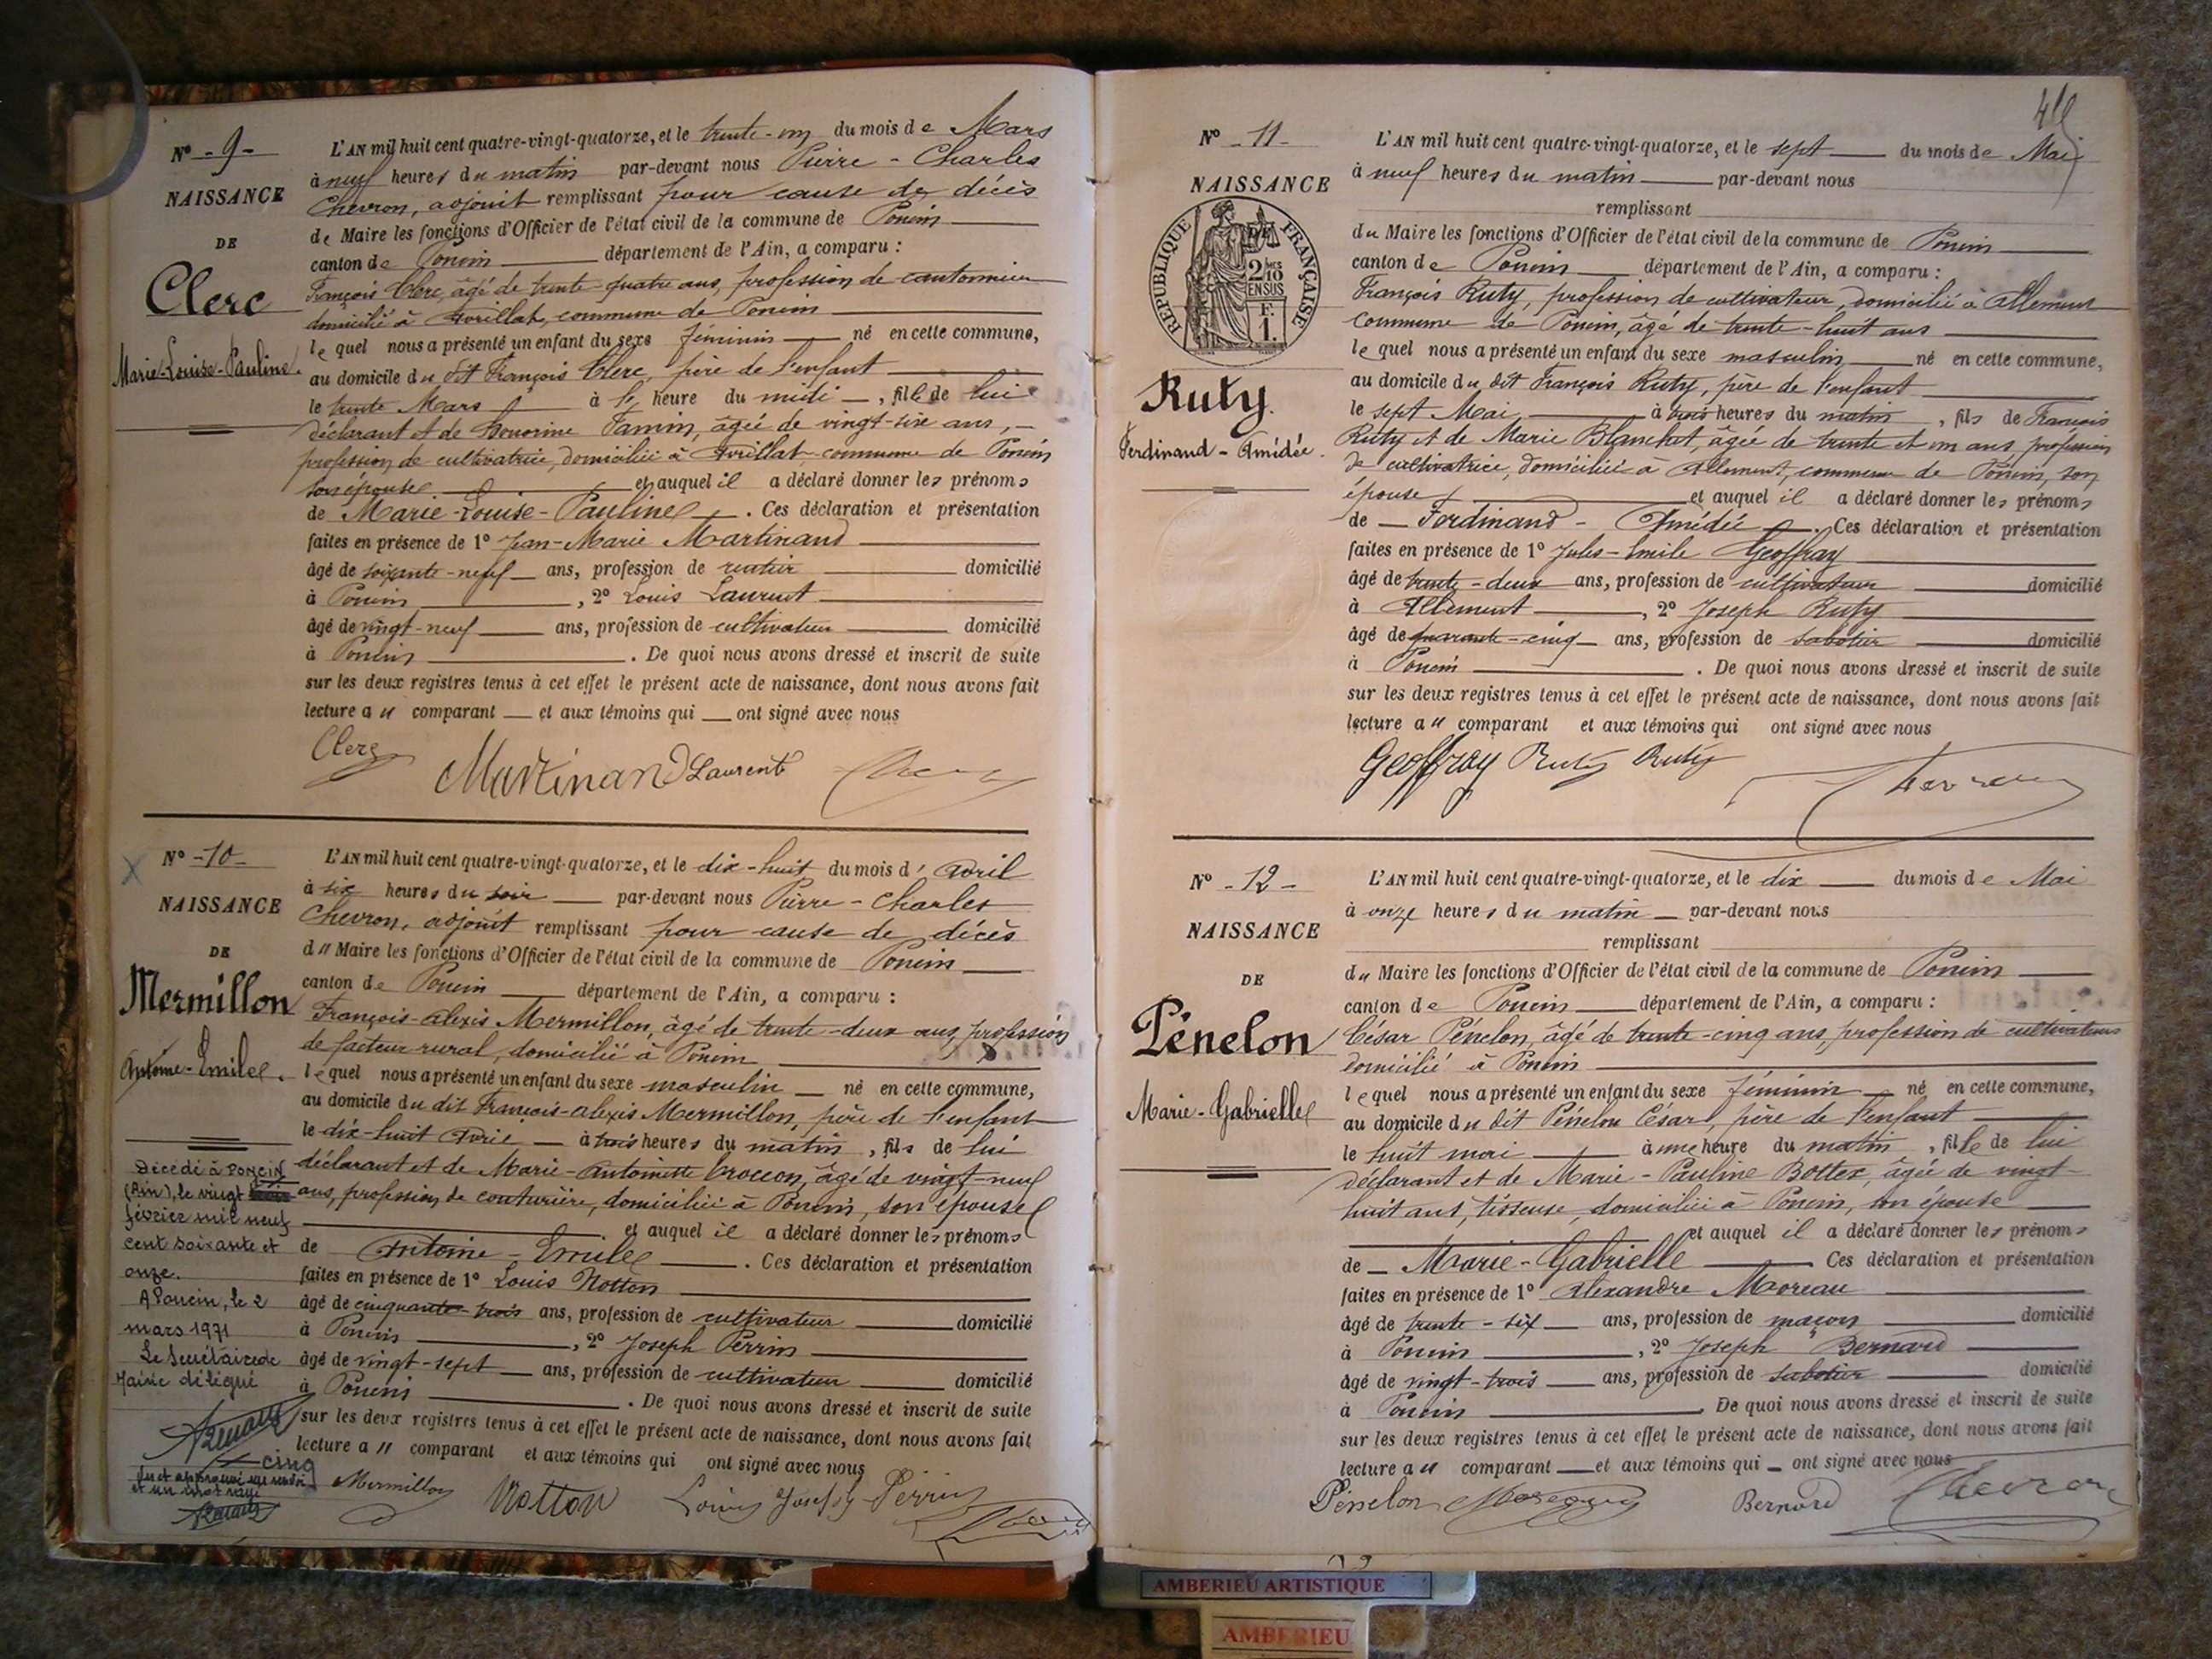 N° - 9 -
NAISSANCE
DE
Clerc
Marie-Louise-Pauline.
L'AN mil huit cent quatre-vingt-quatorze, et le trente-un du mois de Mars
à neuf heures du matin par-devant nous Pierre - Charles
Chevron, adjoint remplissant pour cause de décès
de Maire les fonctions d'Officier de l'état civil de la commune de Poncin
canton de Poncin département de l'Ain, a comparu :
François Clerc, âgé de trente-quatre ans, profession de cantonnier
domicilié à Avrillat, commune de Poncin
lequel nous a présenté un enfant du sexe féminin né en cette commune,
au domicile du dit François Clerc, père de l'enfant
le trente Mars à heure du midi, fille de lui
déclarant et de Honorine Famin, âgée de vingt-six ans,
profession de cultivatrice, domiciliée à Avrillat commune de Poncin
son épouse et auquel il a déclaré donner les prénoms
de Marie-Louise-Pauline. Ces déclaration et présentation
faites en présence de 1° Jean-Marie Martinand
âgé de soixante-neuf ans, profession de rentier domicilié
à Poncin, 2° Louis Laurent
âgé de vingt-neuf ans, profession de cultivateur domicilié
à Poncin. De quoi nous avons dressé et inscrit de suite
sur les deux registres tenus à cet effet le présent acte de naissance, dont nous avons fait
lecture au comparant et aux témoins qui ont signé avec nous
Clerc Martinand Laurent
N° - 10 -
NAISSANCE
DE
Mermillon
Antoine-Emile.
Décédé à PONCIN
(Ain), le vingt
février mil neuf
cent soixante et
onze.
A Poncin, le 2
mars 1971
Le Secrétaire de
Mairie délégué
cinq
Lu et approuvé un renvoi
et un mot rayé
L'AN mil huit cent quatre-vingt-quatorze, et le dix-huit du mois d'Avril
à six heures du soir par-devant nous Pierre - Charles
Chevron, adjoint remplissant pour cause de décès
du Maire les fonctions d'Officier de l'état civil de la commune de Poncin
canton de Poncin département de l'Ain, a comparu :
François-Alexis Mermillon, âgé de trente-deux ans, profession
de facteur rural, domicilié à Poncin
lequel nous a présenté un enfant du sexe masculin né en cette commune,
au domicile du dit François-Alexis Mermillon, père de l'enfant
le dix-huit Avril à trois heures du matin, fils de lui
déclarant et de Marie-Antoinette Croccon, âgé de vingt-neuf
ans, profession de couturière, domiciliée à Poncin, son épouse
et auquel il a déclaré donner les prénoms
de Antoine - Emile. Ces déclaration et présentation
faites en présence de 1° Louis Notton
âgé de cinquante-trois ans, profession de cultivateur domicilié
à Poncin, 2° Joseph Perrin
âgé de vingt-sept ans, profession de cultivateur domicilié
à Poncin. De quoi nous avons dressé et inscrit de suite
sur les deux registres tenus à cet effet le présent acte de naissance, dont nous avons fait
lecture au comparant et aux témoins qui ont signé avec nous
Mermillon Notton Louis Joseph Perrin
N° - 11 -
NAISSANCE
RÉPUBLIQUE FRANÇAISE
2 10
EN SUS
F.
1.
Ruty.
Ferdinand - Amédée.
L'AN mil huit cent quatre-vingt-quatorze, et le sept du mois de Mai
à neuf heures du matin par-devant nous
remplissant
du Maire les fonctions d'Officier de l'état civil de la commune de Poncin
canton de Poncin département de l'Ain, a comparu :
François Ruty, profession de cultivateur, domicilié à Allement
commune de Poncin, âgé de trente-huit ans
lequel nous a présenté un enfant du sexe masculin né en cette commune,
au domicile du dit François Ruty, père de l'enfant
le sept Mai à trois heures du matin, fils de François
Ruty et de Marie Blanchet, âgée de trente et un ans, profession
de cultivatrice, domiciliée à Allement, commune de Poncin, son
épouse et auquel il a déclaré donner les prénoms
de Ferdinand - Amédée. Ces déclaration et présentation
faites en présence de 1° Jules-Emile Geoffray
âgé de trente-deux ans, profession de cultivateur domicilié
à Allement, 2° Joseph Ruty
âgé de quarante-cinq ans, profession de sabotier domicilié
à Poncin. De quoi nous avons dressé et inscrit de suite
sur les deux registres tenus à cet effet le présent acte de naissance, dont nous avons fait
lecture au comparant et aux témoins qui ont signé avec nous
Geoffray Ruty Ruty Chevron
N° - 12 -
NAISSANCE
DE
Pénelon
Marie-Gabrielle
L'AN mil huit cent quatre-vingt-quatorze, et le dix du mois de Mai
à onze heures du matin par-devant nous
remplissant
du Maire les fonctions d'Officier de l'état civil de la commune de Poncin
canton de Poncin département de l'Ain, a comparu :
César Pénelon, âgé de trente-cinq ans, profession de cultivateur
domicilié à Poncin
lequel nous a présenté un enfant du sexe féminin né en cette commune,
au domicile du dit Pénelon César, père de l'enfant
le huit mai à une heure du matin, fille de lui
déclarant et de Marie-Pauline Bottex, âgée de vingt-
huit ans, tisseuse, domiciliée à Poncin, son épouse
et auquel il a déclaré donner les prénoms
de Marie-Gabrielle. Ces déclaration et présentation
faites en présence de 1° Alexandre Moreau
âgé de trente-six ans, profession de maçon domicilié
à Poncin, 2° Joseph Bernard
âgé de vingt-trois ans, profession de sabotier domicilié
à Poncin. De quoi nous avons dressé et inscrit de suite
sur les deux registres tenus à cet effet le présent acte de naissance, dont nous avons fait
lecture au comparant et aux témoins qui ont signé avec nous
Pénelon Moreau Bernard Chevron
AMBERIEU ARTISTIQUE
AMBERIEU